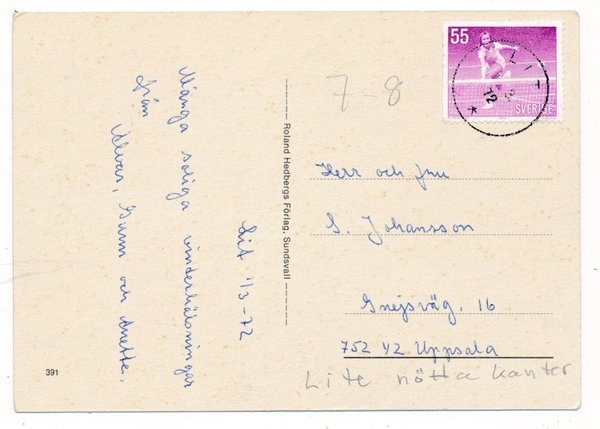 Lit 1/3-72
Många soliga vinterhälsningar
från
Alvar, Gunn och Anette.
391
Roland Hedbergs Förlag, Sundsvall
7-8
55
SVERIGE
LIT
72
Herr och fru
S. Johansson
Gnejsväg. 16
752 42 Uppsala
Lite nötta kanter